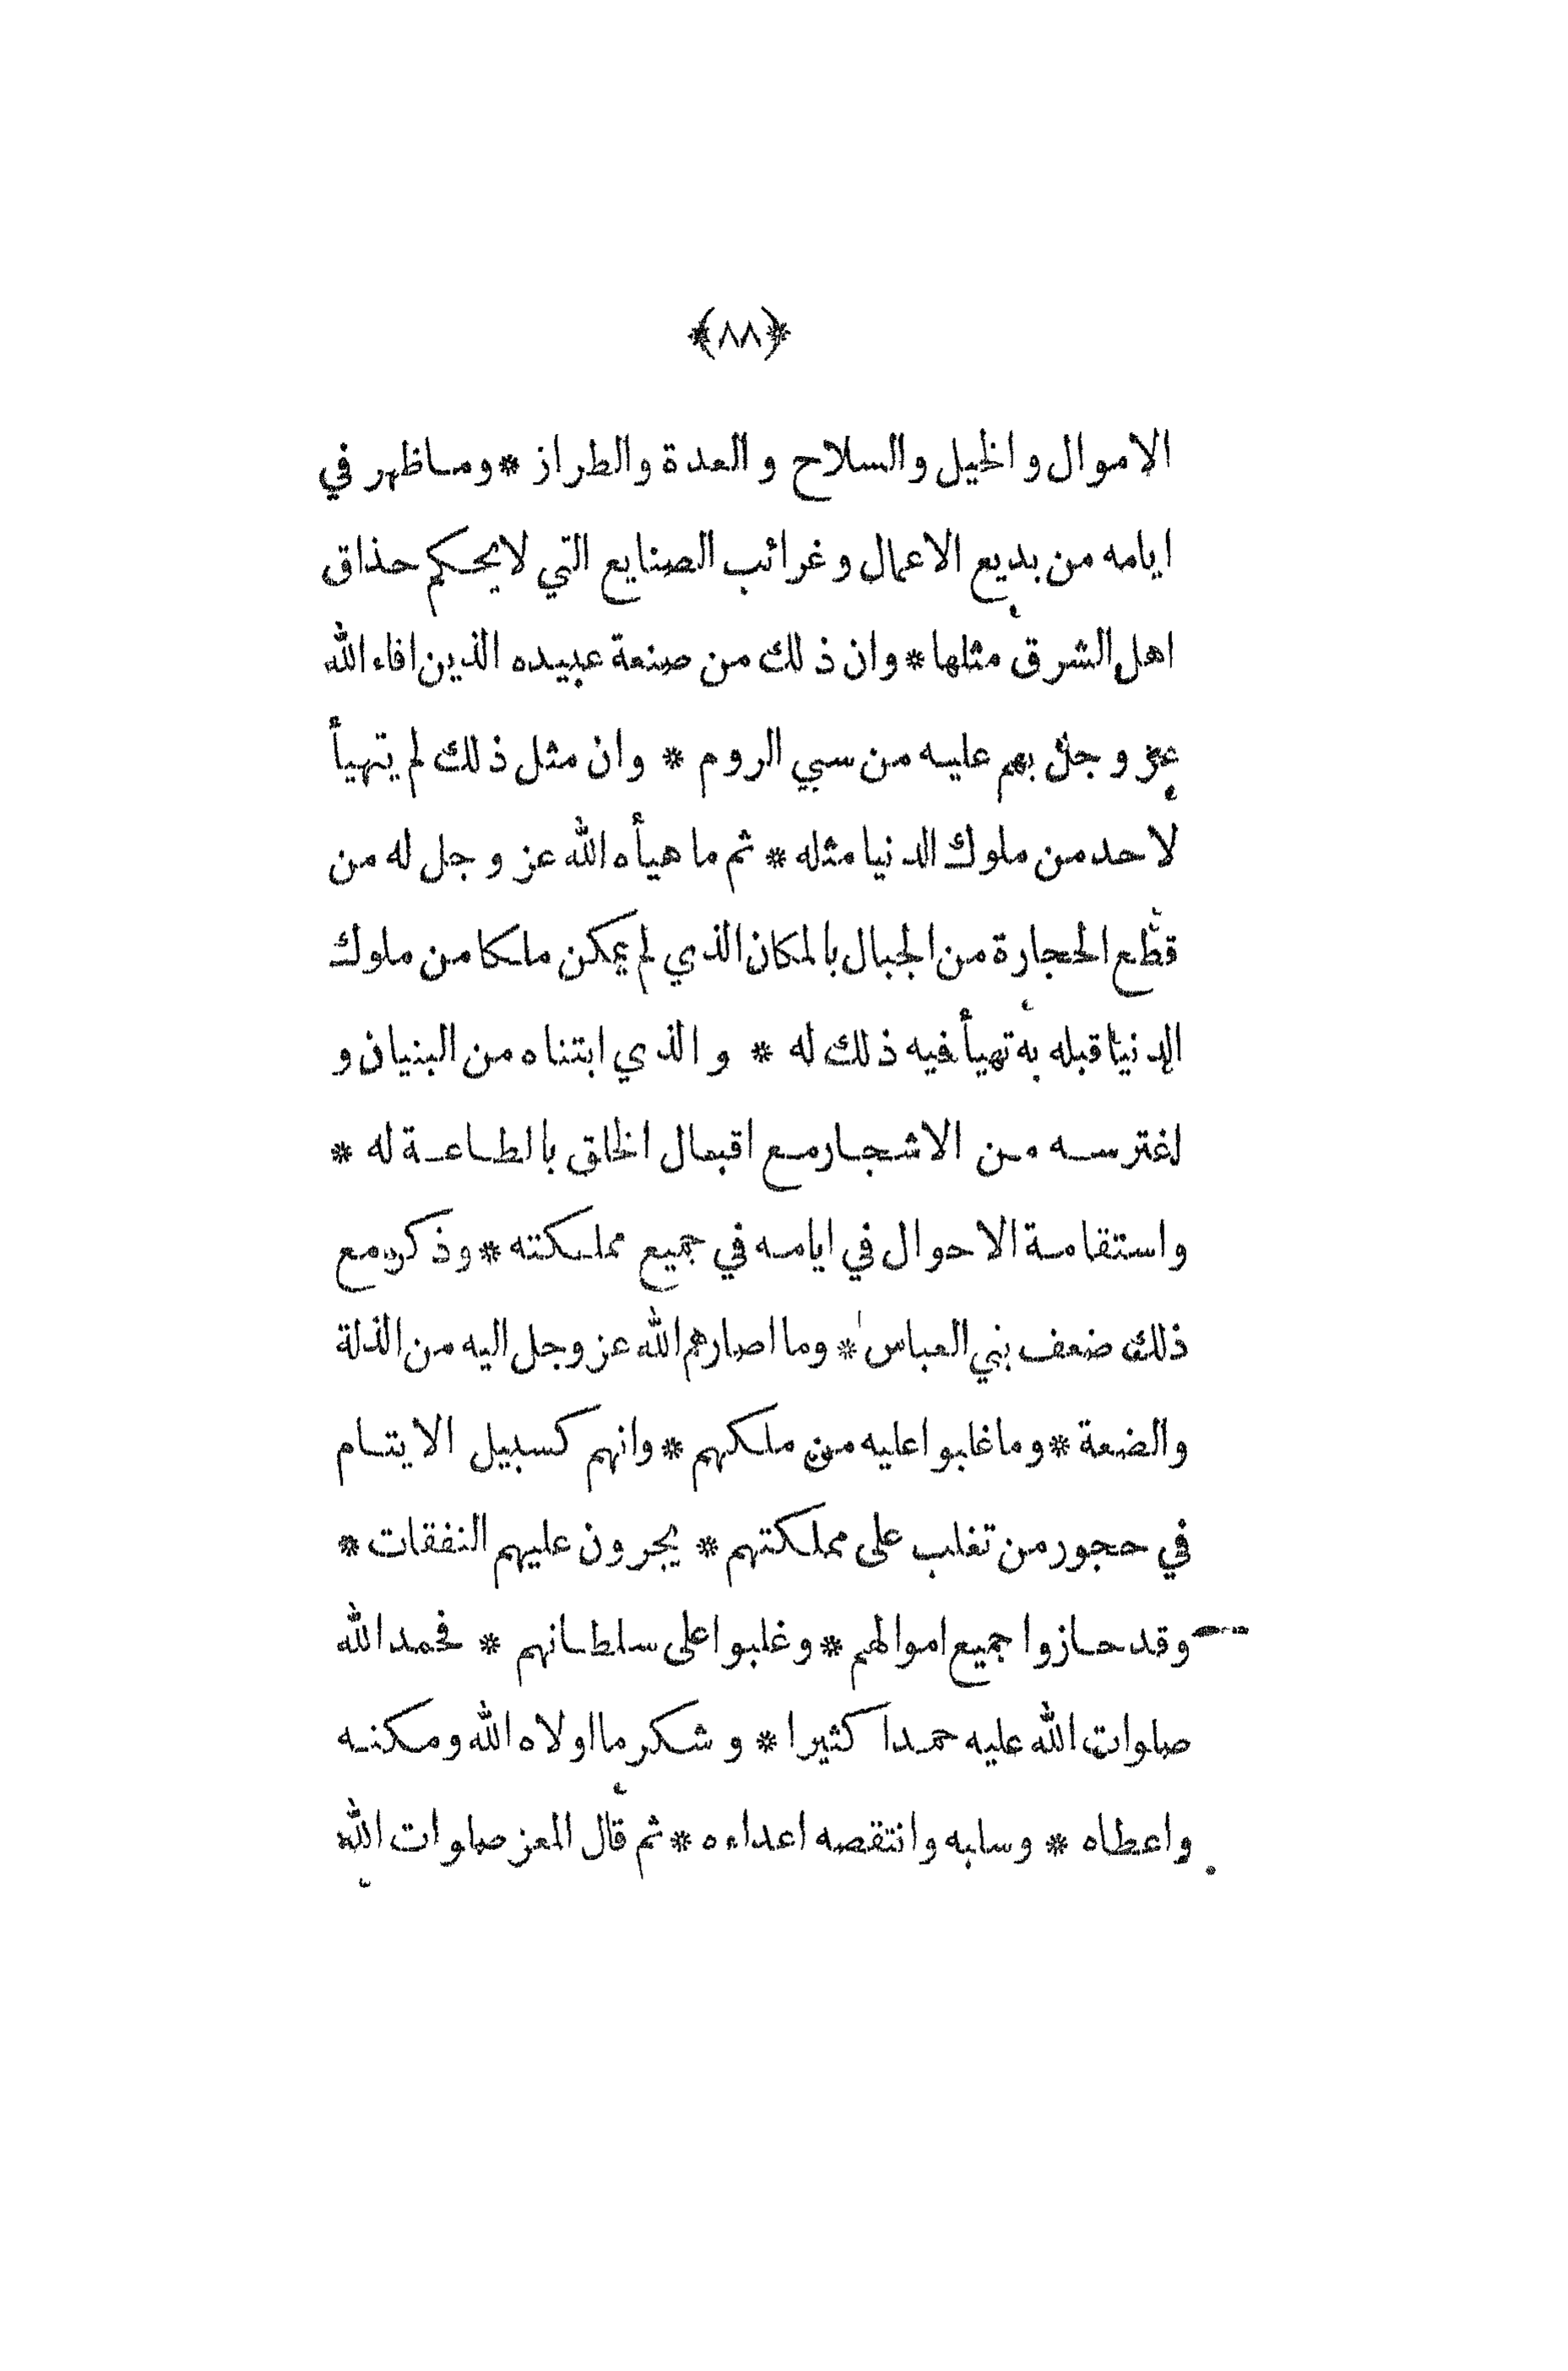 ﴿٨٨﴾
الاموال والخيل والسلاح والعدة والطراز * وماظهر في
ايامه من بديع الاعمال وغرائب الصنايع التي لايحكم حذاق
اهل الشرق مثلها * وان ذلك من صنعة عبيده الذين افاء الله
عز وجل بهم عليه من سبي الروم * وان مثل ذلك لم يتهيأ
لاحد من ملوك الدنيا مثله * ثم ما هيأه الله عز وجل له من
قطع الحجارة من الجبال بالمكان الذي لم يمكن ملكا من ملوك
الدنيا قبله به تهيأ فيه ذلك له * والذي ابتناه من البنيان و
اغترسه من الاشجار مع اقبال الخلق بالطاعة له *
واستقامة الاحوال في ايامه في جميع مملكته * وذكر مع
ذلك ضعف بني العباس * وما اصارهم الله عز وجل اليه من الذلة
والضعة * وما غلبوا عليه من ملكهم * وانهم كسبيل الايتام
في حجور من تغلب على مملكتهم * يجرون عليهم النفقات *
وقد حازوا جميع اموالهم * وغلبوا على سلطانهم * فحمد الله
صلوات الله عليه حمدا كثيرا * وشكر ما اولاه الله ومكنه
واعطاه * وسلبه وانتقصه اعداءه * ثم قال المعز صلوات الله